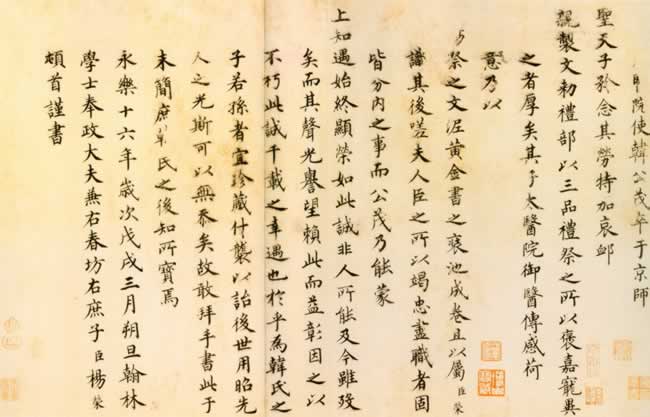 院使韓公茂卒于京師
聖天子矜念其勞特加哀卹
親製文勅禮部以三品禮祭之所以褒嘉寵異
之者厚矣其子太醫院御醫傳感荷
意乃以
祭之文泥黃金書之池成卷且以屬臣榮
識其後嗟夫人臣之所以竭忠盡職者固
皆分內之事而公茂乃能蒙
上知遇始終顯榮如此誠非人所能及今雖歿
矣而其聲光譽望賴此而益彰因之以
不朽此誠千載之幸遇也於乎為韓氏之
子若孫者宜珍藏什襲以詒後世用昭先
人之光斯可以無忝矣故敢拜手書此于
末簡庶氏之後知所寶焉
永樂十六年歲次戊戌三月朔旦翰林
學士奉政大夫兼右春坊右庶子臣楊榮
頓首謹書